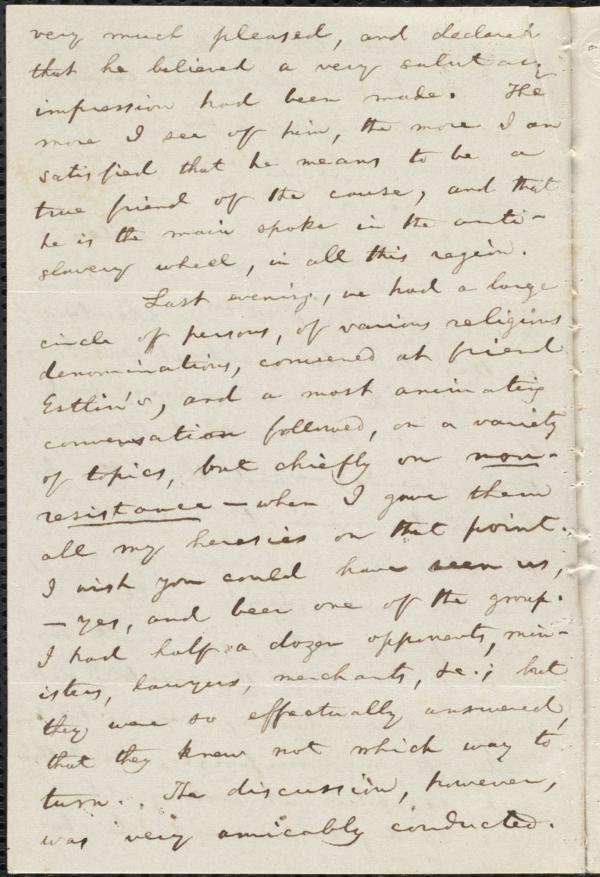 very much pleased, and declared
that he believed a very salutary
impression had been made. The
more I see of him, the more I am
satisfied that he means to be a
true friend of the cause, and that
he is the main spoke in the anti-
slavery wheel, in all this region.
Last evening, we had a large
circle of persons, of various religious
denominations, convened at friend
Estlin's, and a most animating
conversation followed, on a variety
of topics, but chiefly on non-
resistance — when I gave them
all my heresies on that point.
I wish you could have seen us,
— yes, and been one of the group.
I had half a dozen opponents, min-
isters, lawyers, merchants, &c.; but
they were so effectually answered,
that they knew not which way to
turn. The discussion, however,
was very amicably conducted.